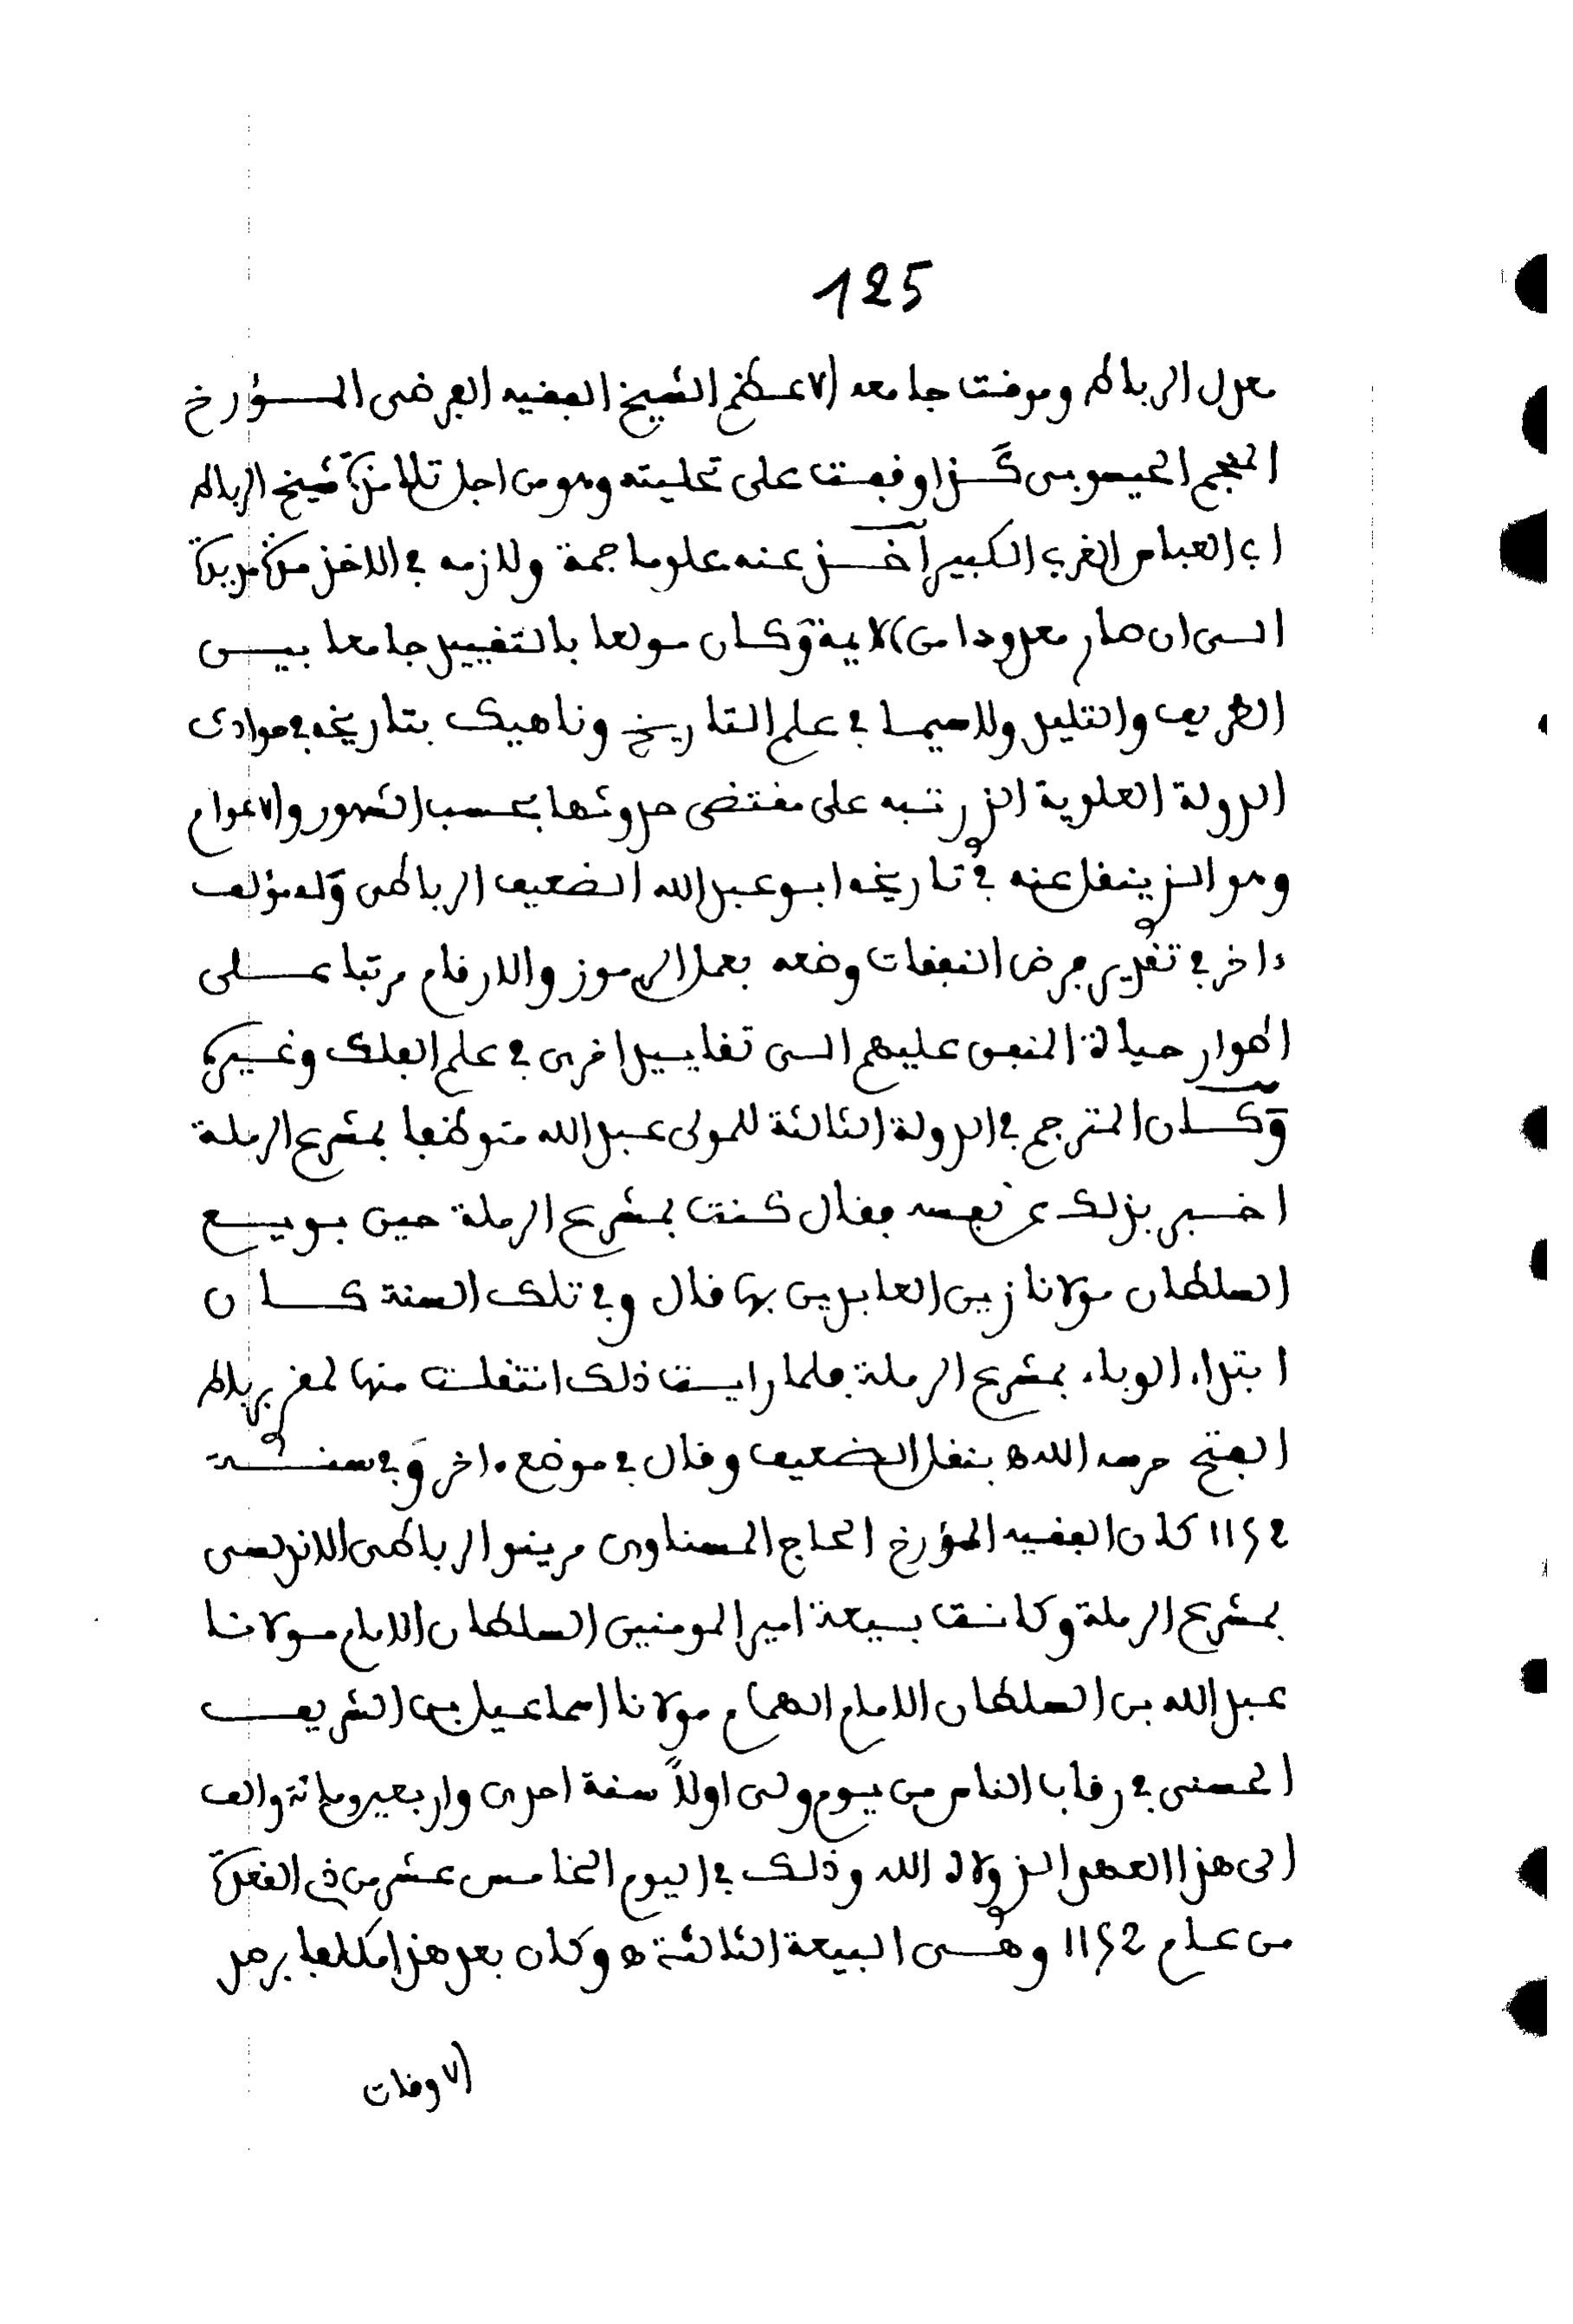 125
معدل الرباط وموقت جامعه الاعظم الشيخ الفقيه الفرضى المـؤرخ
المنجم الحيسوبى كذا وقفت على تحليته وهو من اجل تلامذة شيخ الرباط
ابى العباس الغربى الكبير اخذ عنه علوما جمة ولازمه فى الاخذ مدة مديدة
الى ان صار معدودا من الايمة وكان مولعا بالتقييد جامعا بيـن
الطريف والتليد ولاسيما فى علم التاريخ وناهيك بتاريخه فى حوادث
الدولة العلوية الذى رتبه على مقتضى حدوثها بحسب الشهور والاعوام
وهو الذى ينقل عنه فى تاريخه ابو عبد الله الضعيف الرباطى وله مؤلف
ءاخر فى تقدير فرض النفقات وضعه بعمل الرموز والارقام مرتبا علـى
اطوار حياة المنفق عليهم الى تقاييد اخرى فى علم الفلك وغيره
وكـان المترجم فى الدولة الثالثة للمولى عبد الله متوظفا بمشرع الرملة
اخبر بذلك عن نفسه فقال كنت بمشرع الرملة حين بويـع
السلطان مولانا زين العابدين بها قال وفى تلك السنة كـان
ابتداء الوباء بمشرع الرملة فلما رايت ذلك انتقلت منها لثغر رباط
الفتح حرسه الله ه بنقل الضعيف وقال فى موضع ءاخر وفى سنـة
1152 كان الفقيه المؤرخ الحاج المسناوى مرينو الرباطى الاندلسى
بمشرع الرملة وكانت بيعة امير المومنين السلطان الامام مولانـا
عبد الله بن السلطان الامام الهمام مولانا اسماعيل بن الشريف
الحسنى فى رقاب الناس من يوم ولى اولاً سنة احدى واربعين ومائة والف
الى هذا العهد الذى ولاه الله وذلك فى اليوم الخامس عشر من ذى القعدة
من عام 1152 وهـى البيعة الثالثة ه وكان بعد هذا مكلفا برصد
الاوقات